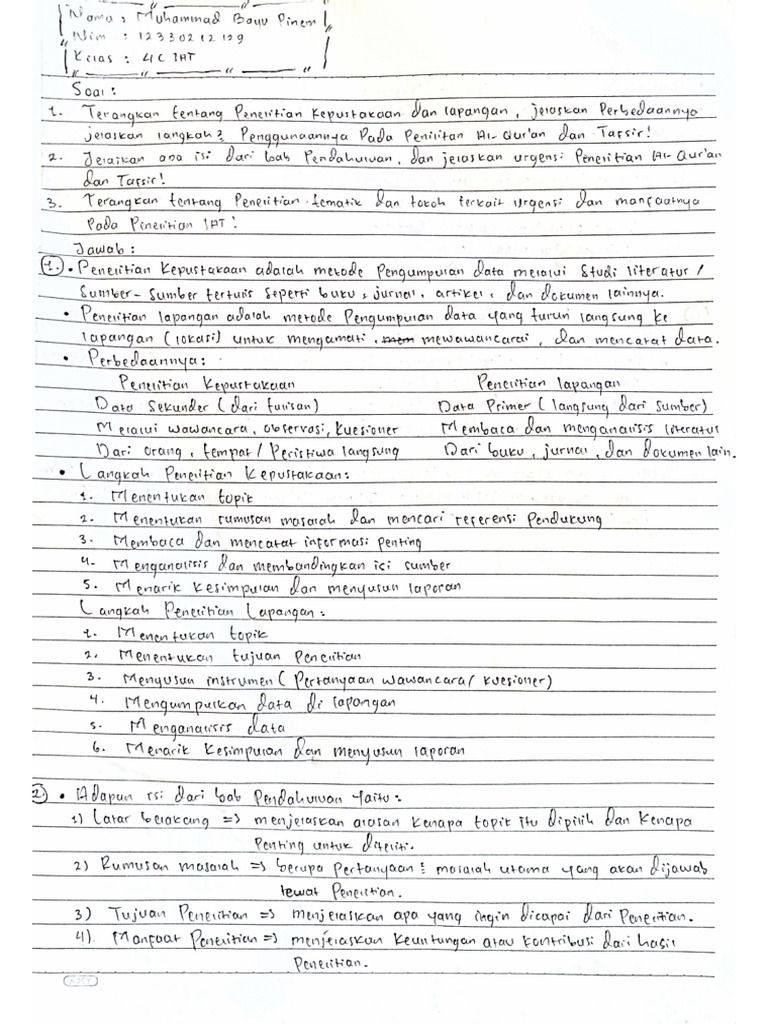 Nama : Muhammad Bayu Pinem
Nim : 12330212129
Kelas : 4C IAT
Soal :
1. Terangkan tentang Penelitian Kepustakaan dan lapangan, jelaskan Perbedaannya
jelaskan langkah2 Penggunaannya Pada Penilitan Al-Qur'an dan Tafsir!
2. Jelaskan apa isi dari bab Pendahuluan, dan jelaskan urgensi Penelitian Al-Qur'an
dan Tafsir!
3. Terangkan tentang Penelitian tematik dan tokoh terkait Urgensi dan manfaatnya
Pada Penelitian IAT!
Jawab :
1. • Penelitian Kepustakaan adalah metode Pengumpulan data melalui Studi literatur/
Sumber-Sumber tertulis seperti buku, jurnal, artikel, dan dokumen lainnya.
• Penelitian lapangan adalah metode Pengumpulan data yang turun langsung ke
lapangan (lokasi) untuk mengamati, mewawancarai, dan mencatat data.
• Perbedaannya :
Penelitian Kepustakaan Penelitian lapangan
Data Sekunder (dari tulisan) Data Primer (langsung dari sumber)
Melalui wawancara, observasi, Kuesioner Membaca dan menganalisis literatur
Dari orang, tempat/Peristiwa langsung Dari buku, jurnal, dan dokumen lain.
• Langkah Penelitian Kepustakaan :
1. Menentukan topik
2. Menentukan rumusan masalah dan mencari referensi Pendukung
3. Membaca dan mencatat informasi penting
4. Menganalisis dan membandingkan ici sumber
5. Menarik Kesimpulan dan menyusun laporan
Langkah Penelitian Lapangan :
1. Menentukan topik
2. Menentukan tujuan Penelitian
3. Menyusun instrumen (Pertanyaan wawancara/Kuesioner)
4. Mengumpulkan data di lapangan
5. Menganalisis data
6. Menarik Kesimpulan dan menyusun laporan
2. • Adapun isi dari bab Pendahuluan Yaitu :
1) Latar belakang => menjelaskan alasan kenapa topik itu dipilih dan Kenapa
Penting untuk diteliti.
2) Rumusan masalah => berupa Pertanyaan2 masalah utama yang akan dijawab
lewat Penelitian.
3) Tujuan Penelitian => menjelaskan apa yang ingin dicapai dari Penelitian.
4). Manfaat Penelitian => menjelaskan Keuntungan atau Kontribusi dari hasil
Penelitian.